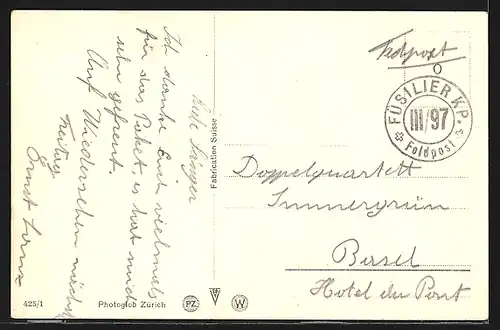 Liebe Sänger
Ich danke Euch vielmals
für das Paket, es hat mich
sehr gefreut.
Auf Wiedersehen nächsten
Freitag
Ernst
Fabrication Suisse
Feldpost
FÜSILIER KP.
III/97
Feldpost
Doppelquartett
Immergrün
Basel
Hotel du Pont
425/1 Photoglob Zürich PZ W